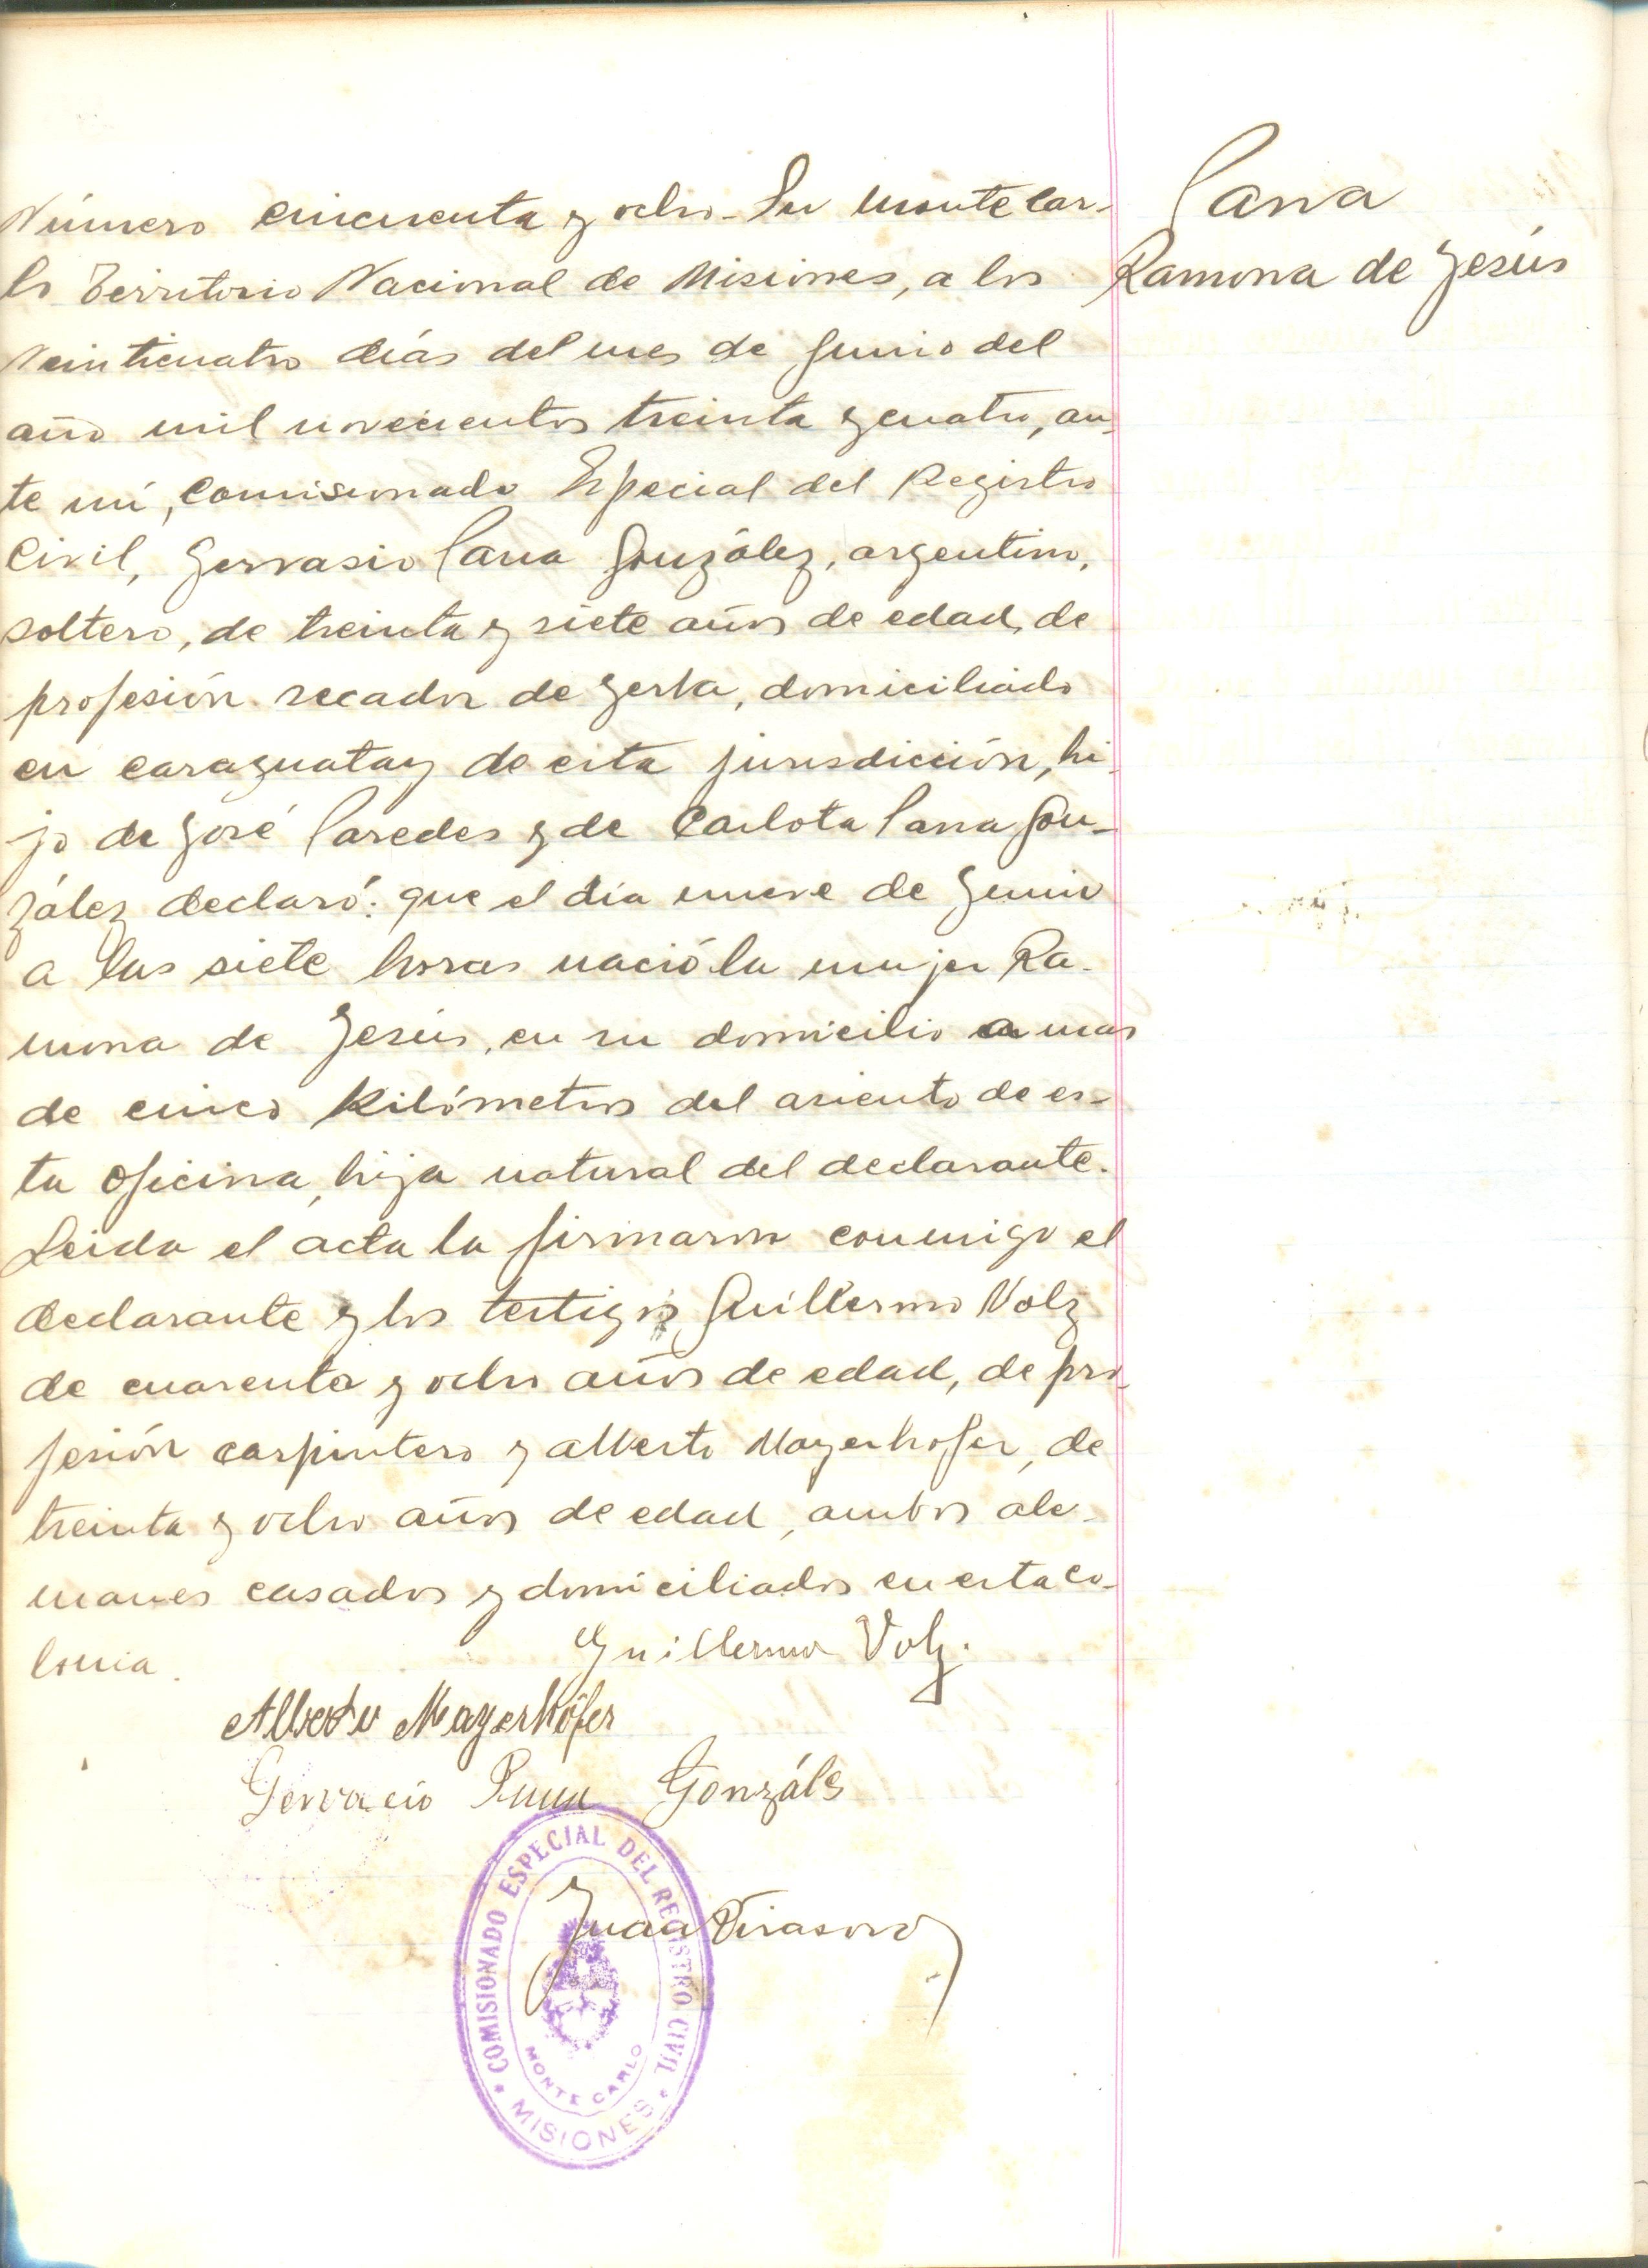 Parra
Ramona de Jesús
Número cincuenta y ocho - En Monte Car-
lo Territorio Nacional de Misiones, a los
veinticuatro días del mes de Junio del
año mil novecientos treinta y cuatro, an-
te mi, Comisionado Especial del Registro
Civil, Gervasio Parra González, argentino,
soltero, de treinta y siete años de edad, de
profesión secador de yerba, domiciliado
en Caraguatay de esta jurisdicción, hi-
jo de José Paredes y de Carlota Parra Gon-
zález declaró: que el día nueve de Junio
a las siete horas nació la mujer Ra-
mona de Jesús, en su domicilio a mas
de cinco Kilómetros del asiento de es-
ta oficina, hija natural del declarante.
Leida el acta la firmaron conmigo el
declarante y los testigos Guillermo Volz
de cuarenta y ocho años de edad, de pro-
fesión carpintero y Alberto Mayerhofer, de
treinta y ocho años de edad, ambos ale-
manes casados y domiciliados en esta co-
lonia.
Guillermo Volz.
Alberto Mayerhöfer
Gervacio Gonzáls
Juan Virasoro
COMISIONADO ESPECIAL DEL REGISTRO CIVIL
MONTE CARLO
* MISIONES *